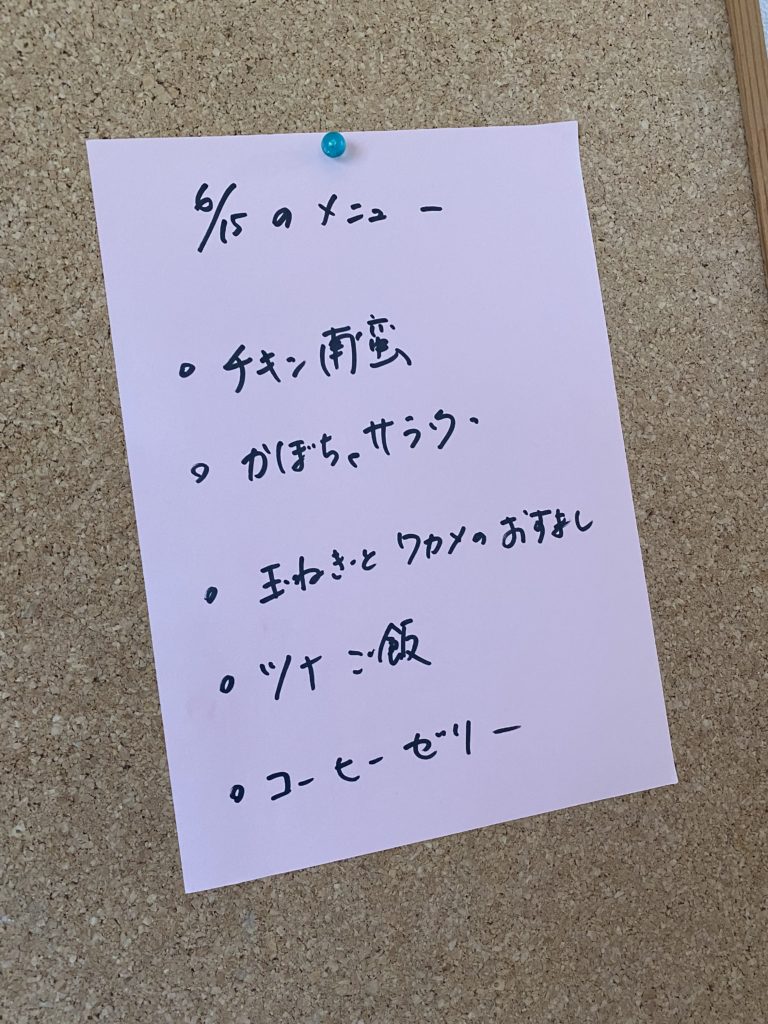 6/15のメニュー
。チキン南蛮
。かぼちゃサラダ
。玉ねぎとワカメのおすまし
。ツナご飯
。コーヒーゼリー